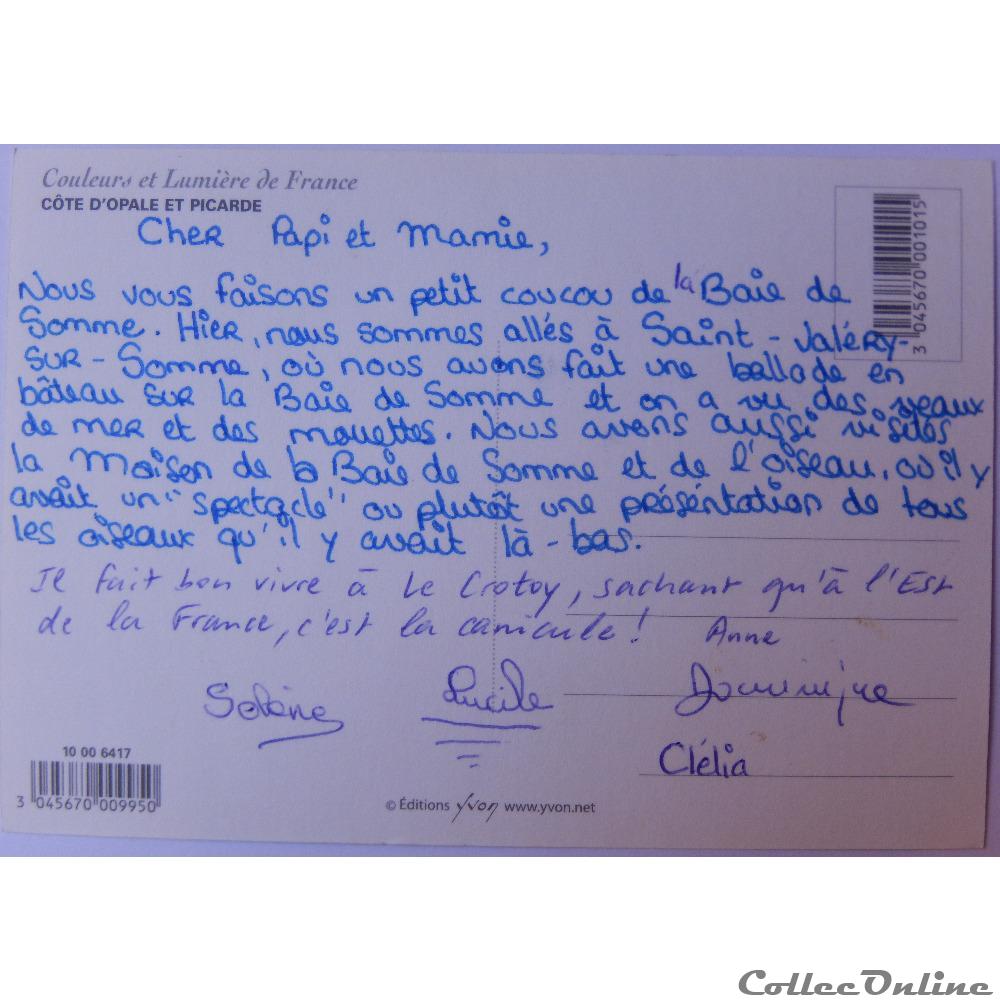 Couleurs et Lumière de France
CÔTE D'OPALE ET PICARDE
Cher Papi et Mamie,
Nous vous faisons un petit coucou de la Baie de
Somme. Hier, nous sommes allés à Saint-Valéry-
sur-Somme, où nous avons fait une ballade en
bâteau sur la Baie de Somme et on a vu des veaux
de mer et des mouettes. Nous avons aussi visités
la Maison de la Baie de Somme et de l'oiseau, où il y
avait un "spectacle" ou plutôt une préséntation de tous
les oiseaux qu'il y avait là-bas.
Il fait bon vivre à Le Crotoy, sachant qu'à l'Est
de la France, c'est la canicule! Anne
Solène Lucile Dominique
Clélia
3 045670 001015
10 00 6417
3 045670 009950
© Éditions Yvon www.yvon.net
CollecOnline